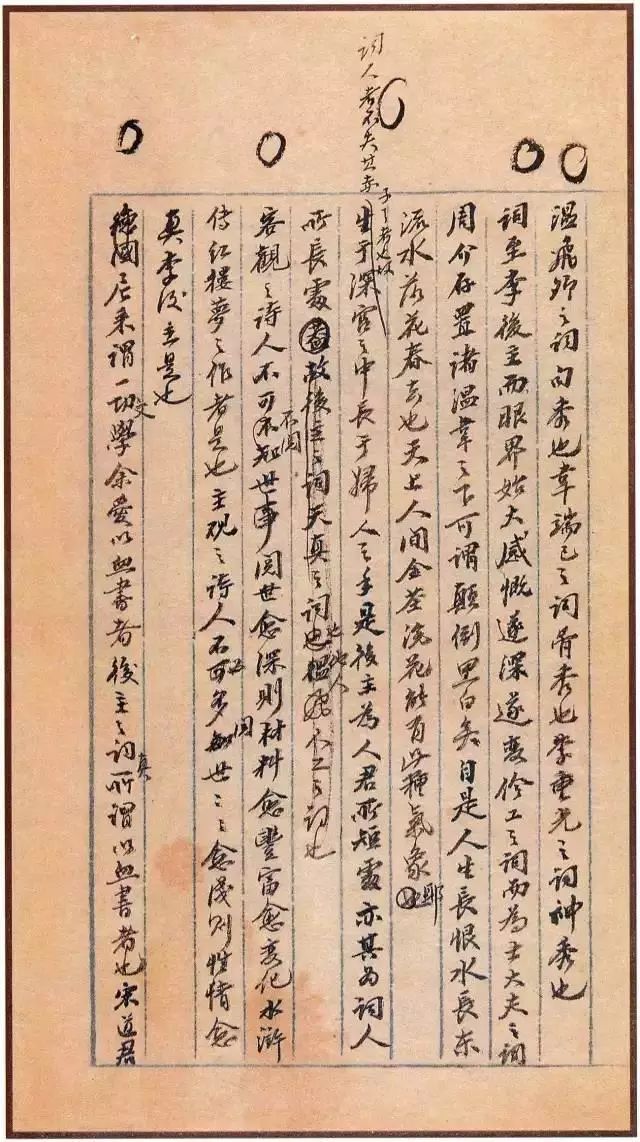 温飛卿之詞句秀也韋端己之詞骨秀也李重光之詞神秀也
詞至李後主而眼界始大感慨遂深遂變伶工之詞而為士大夫之詞
周介存置諸温韋之下可謂顛倒黑白矣自是人生長恨水長東
流水落花春去也天上人间金荃浣花能有此種氣象也耶
詞人者不失其赤子之心者也故
生于深宮之中長于婦人之手是後主為人君所短處亦其為詞人
所長處故後主之詞天真之詞也他人人工之詞也
客觀之诗人不可不知世事不閲世愈深則材料愈豐富愈变化水滸
傳红樓夢之作者是也主观之诗人不可多閲世世愈淺则性情愈
真李後主是也
尼采謂一切文學余愛以血書者後主之詞真所謂以血書者也宋道君